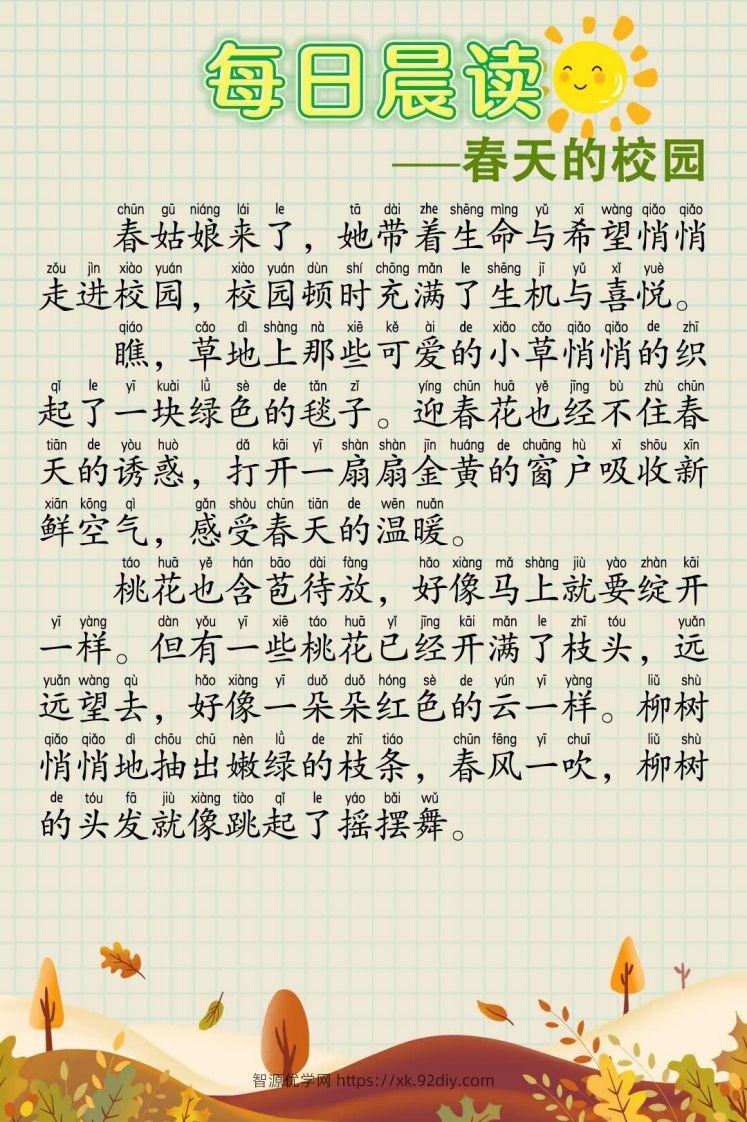 每日晨读
——春天的校园
chūn gū niáng lái le tā dài zhe shēng mìng yǔ xī wàng qiǎo qiǎo
春姑娘来了，她带着生命与希望悄悄
zǒu jìn xiào yuán xiào yuán dùn shí chōng mǎn le shēng jī yǔ xǐ yuè
走进校园，校园顿时充满了生机与喜悦。
qiáo cǎo dì shàng nà xiē kě ài de xiǎo cǎo qiǎo qiǎo de zhī
瞧，草地上那些可爱的小草悄悄的织
qǐ le yī kuài lǜ sè de tǎn zǐ yíng chūn huā yě jīng bù zhù chūn
起了一块绿色的毯子。迎春花也经不住春
tiān de yòu huò dǎ kāi yī shàn shàn jīn huáng de chuāng hù xī shōu xīn
天的诱惑，打开一扇扇金黄的窗户吸收新
xiān kōng qì gǎn shòu chūn tiān de wēn nuǎn
鲜空气，感受春天的温暖。
táo huā yě hán bāo dài fàng hǎo xiàng mǎ shàng jiù yào zhàn kāi
桃花也含苞待放，好像马上就要绽开
yī yàng dàn yǒu yī xiē táo huā yǐ jīng kāi mǎn le zhī tóu yuǎn
一样。但有一些桃花已经开满了枝头，远
yuǎn wàng qù hǎo xiàng yī duǒ duǒ hóng sè de yún yī yàng liǔ shù
远望去，好像一朵朵红色的云一样。柳树
qiǎo qiǎo dì chōu chū nèn lǜ de zhī tiáo chūn fēng yī chuī liǔ shù
悄悄地抽出嫩绿的枝条，春风一吹，柳树
de tóu fā jiù xiàng tiào qǐ le yáo bǎi wǔ
的头发就像跳起了摇摆舞。
智源优学网 https://xk.92diy.com